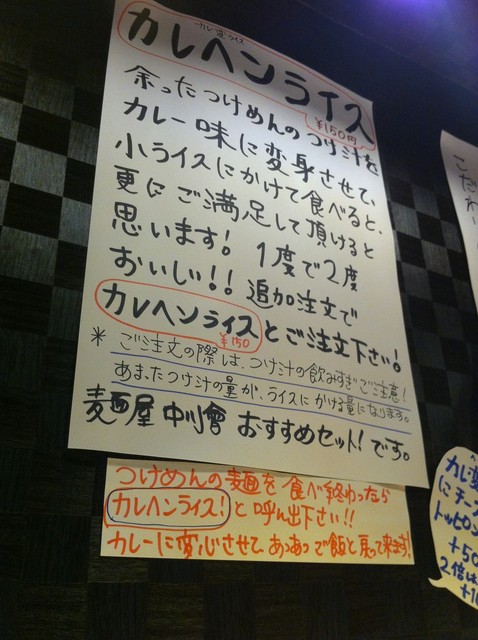 カレ変ライス
カレヘンライス
¥150円
余ったつけめんのつけ汁を
カレー味に変身させて、
小ライスにかけて食べると、
更にご満足して頂けると
思います! 1度で2度
おいしい!! 追加注文で
カレヘンライスとご注文下さい!
¥150
* ご注文の際は、つけ汁の飲みすぎご注意!
あまったつけ汁の量が、ライスにかける量になります。
麺屋 中川會 おすすめセット!です。
つけめんの麺を食べ終わったら
カレヘンライス!と呼出下さい!!
カレーに変心させて、あっあっで飯と戻って来ます!
こだわ
カレ変
にチー
トッピン
+50
2倍は